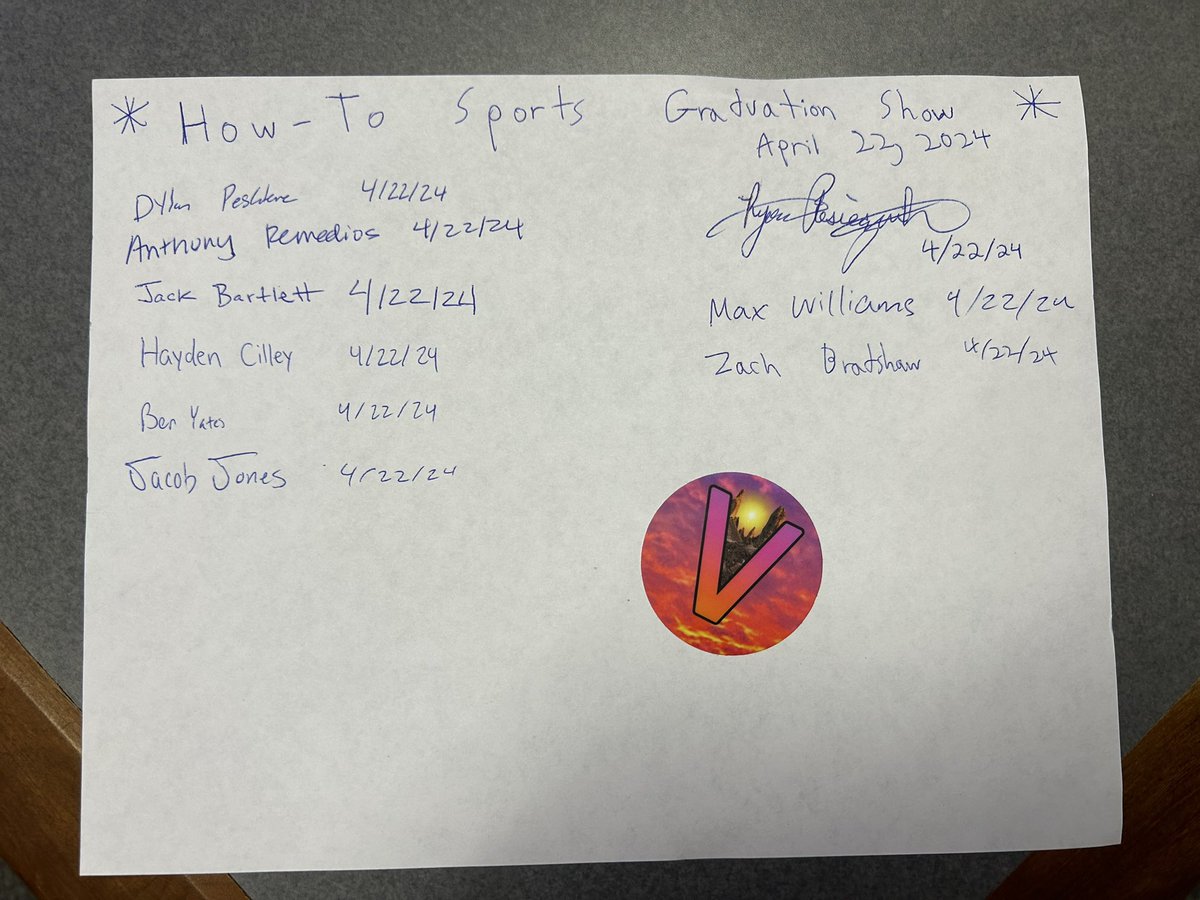 * How-To Sports Graduation Show *
April 22, 2024
Dylan 4/22/24
Anthony Remedios 4/22/24
Jack Bartlett 4/22/24
Hayden Cilley 4/22/24
Ben Yates 4/22/24
Jacob Jones 4/22/24
Ryan
4/22/24
Max Williams 4/22/24
Zach Bradshaw 4/22/24
V